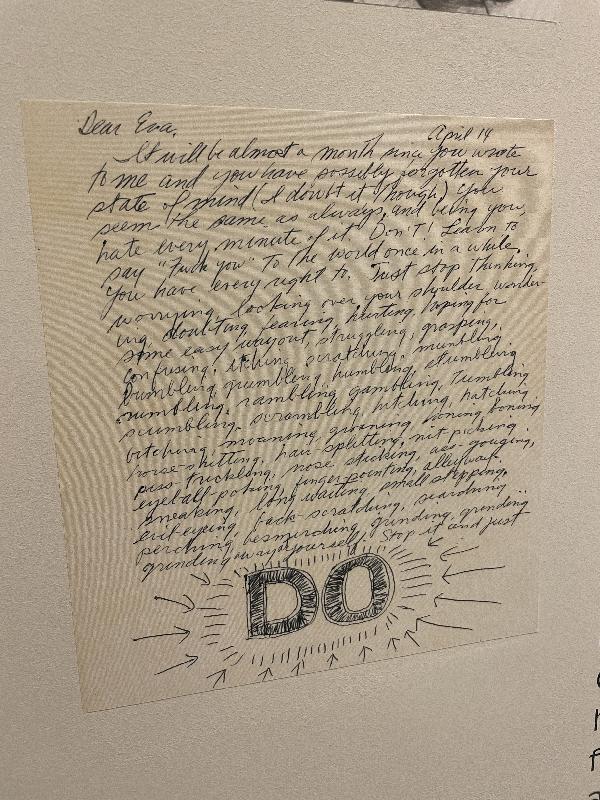 Dear Eva,
April 14
It will be almost a month since you wrote
to me and you have possibly forgotten your
state of mind (I doubt it though) you
seem the same as always, and being you,
hate every minute of it. Don't! Learn to
say "Fuck you" to the world once in a while.
You have every right to. Just stop thinking,
worrying, looking over your shoulder, wonder-
ing, doubting, fearing, hurting, hoping for
some easy way out, struggling, grasping,
confusing, itching, scratching, mumbling,
bumbling, grumbling, humbling, stumbling,
numbling, rambling, gambling, tumbling,
scumbling, scrambling, hitching, hatching,
bitching, moaning, groaning, honing, boning,
horse-shitting, hair splitting, nit picking,
piss-trickling, nose sticking, ass-gouging,
eyeball-poking, finger pointing, alleyway-
sneaking, long waiting, small stepping,
evil-eyeing, back-scratching, searching,
perching, besmirching, grinding, grinding,
grinding away at yourself. Stop it and just
DO